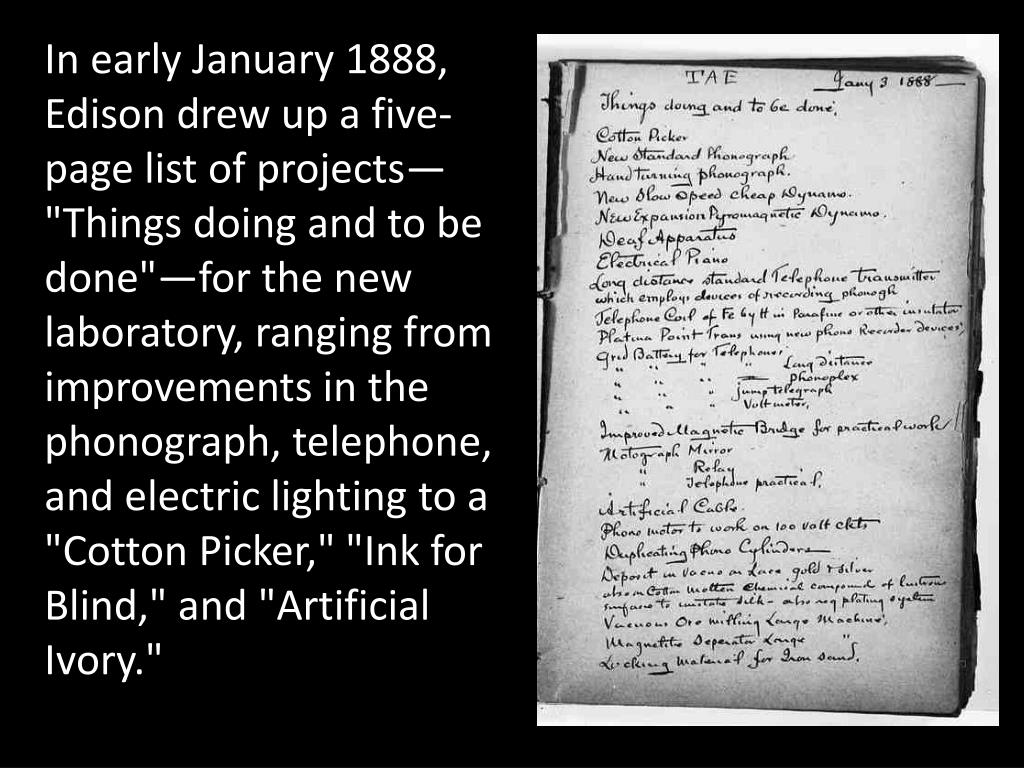 In early January 1888,
Edison drew up a five-
page list of projects—
"Things doing and to be
done"—for the new
laboratory, ranging from
improvements in the
phonograph, telephone,
and electric lighting to a
"Cotton Picker," "Ink for
Blind," and "Artificial
Ivory."
TAE Jany 3 1888
Things doing and to be done,
Cotton Picker
New Standard Phonograph
Hand turning phonograph.
New Slow Speed cheap Dynamo.
New Expansion Pyromagnetic Dynamo.
Deaf Apparatus
Electrical Piano
Long distance standard Telephone Transmitter
which employs devices of recording phonogh
Telephone Coil of Fe by H in Parafine or other insulator
Platina Point Trans using new phono Recorder devices
Grid Battery for Telephones.
" " " " Long distance
" " " Phonoplex
" " " Jump telegraph
" " " Voltmeter,
Improved Magnetic Bridge for practical work
Motograph Mirror
" Relay
" Telephone practical,
Artificial Cable
Phono motor to work on 100 volt ckts
Duplicating Phono Cylinders
Deposit in vacuo on Lace, gold & silver
also on Cotton molten Chemical compound of lustrous
surface to imitate silk - also reg plating system
Vacuous Ore milling Large Machine,
Magnetic Seperator Large "
Locking Material for Iron sand,